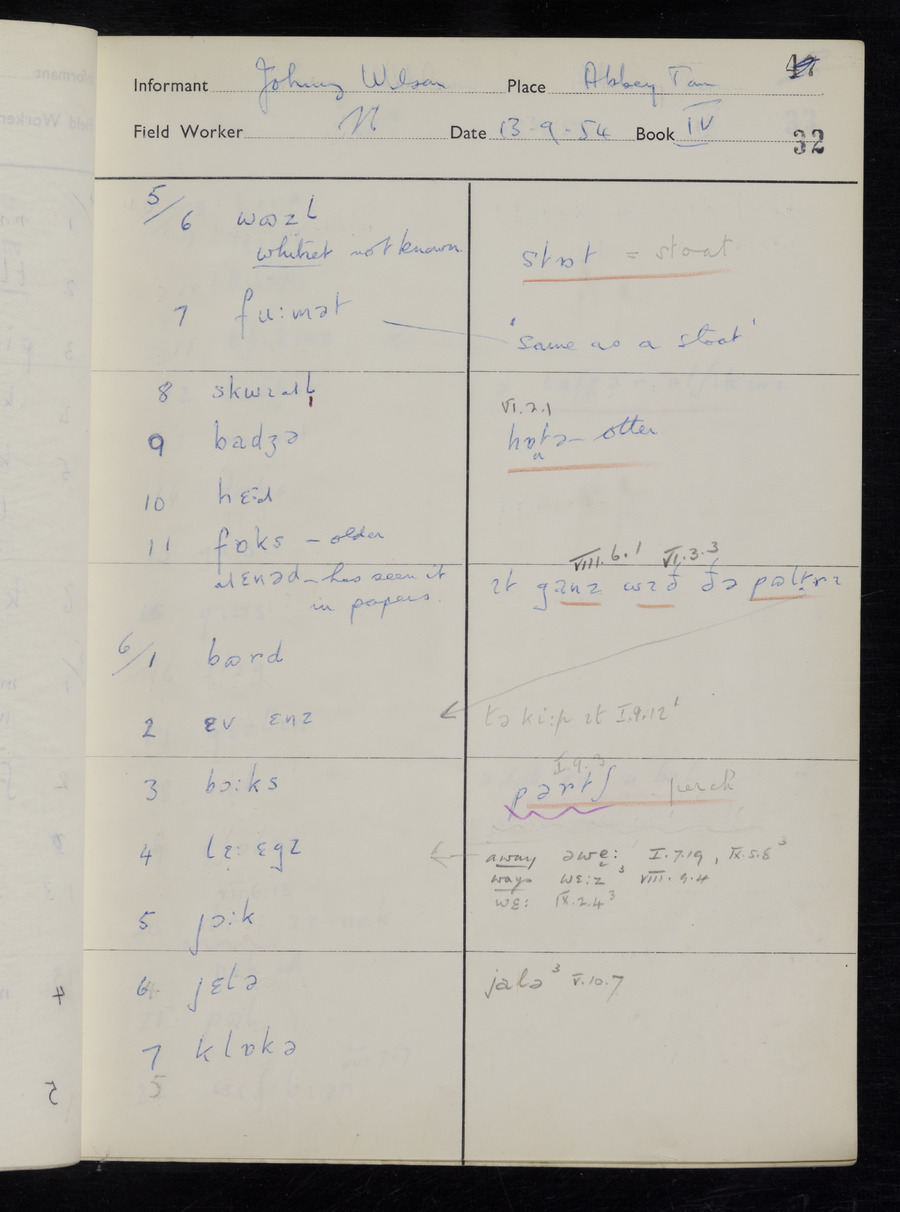 Informant Johnny Wilson Place Abbey Town
Field Worker N Date 13-9-54 Book IV
32
5/6 wɒzl̩
whitret not known
stɒt = stoat
7 fu:mət
'same as a stoat'
8 skwɪɹl̩
VI.2.1
9 badʒə
hɒtə – otter
10 hɛ:d
11 fɒks – older
VIII.6.1 VI.3.3
ɹɛnəd – has seen it
in papers.
ɪt ganz wɪð ðə pɒltrɪ
6/1 bɒrd
2 ɛv ɛnz
tə ki:p ɪt I.9.12¹
I.9.3
3 bɔ:ks
partʃ perch
4 lɛ: ɛgz
away əwe: I.7.19, IX.5.8³
ways wɛ:z³ VIII.9.4
wɛ: IX.2.4³
5 jɔ:k
6 jɛlə
jalə³ V.10.7
7 klɒkə
5